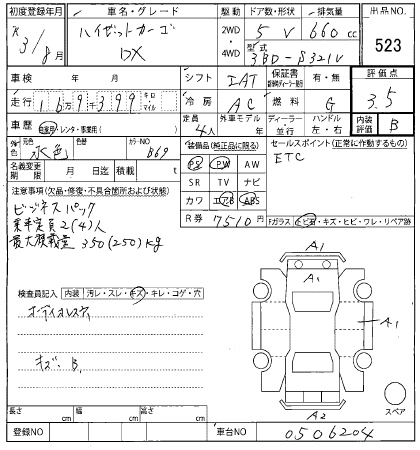 初度登録年月 車名・グレード 駆動 ドア数・形状 排気量 出品NO.
R 3/8月 ハイゼットカーゴ DX 2WD 4WD 5 V 660 cc 523
型式 3BD-S321V
車検 年 月 シフト IAT 保証書 有・無 評価点
走行 16万9千399 キロ マイル 冷房 AC 燃料 G 3.5
車歴 自家用・レンタ・事業用( ) 定員 4人 外車モデル 年 ディーラー・並行 ハンドル 左・右 内装評価 B
元色 水色 色替 カラーNO B69
装備品(純正品に限る) セールスポイント(正常に作動するもの)
PS PW AW ETC
名義変更期限 月 日 積載 t
SR TV ナビ
注意事項(欠品・修復・不具合箇所および状態)
カワ エアB ABS
ビジネスパック
R券 7510円 Fガラス トビ石・キズ・ヒビ・ワレ・リペア跡
乗車定員2(4)人
最大積載量 350(250)kg
A1
A1
検査員記入 内装 汚レ・スレ・キズ・キレ・コゲ・穴
オーディオレス
A1
キズ B
スペア
長さ cm 幅 cm 高さ cm
A2
登録NO 車台NO 0506204